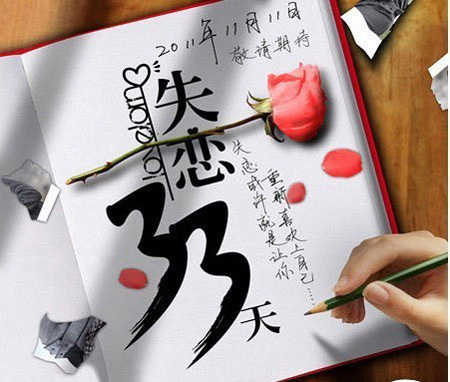 2011年11月11日
敬请期待
失恋
33
天
失恋或许就是让你
重新喜欢上自己……